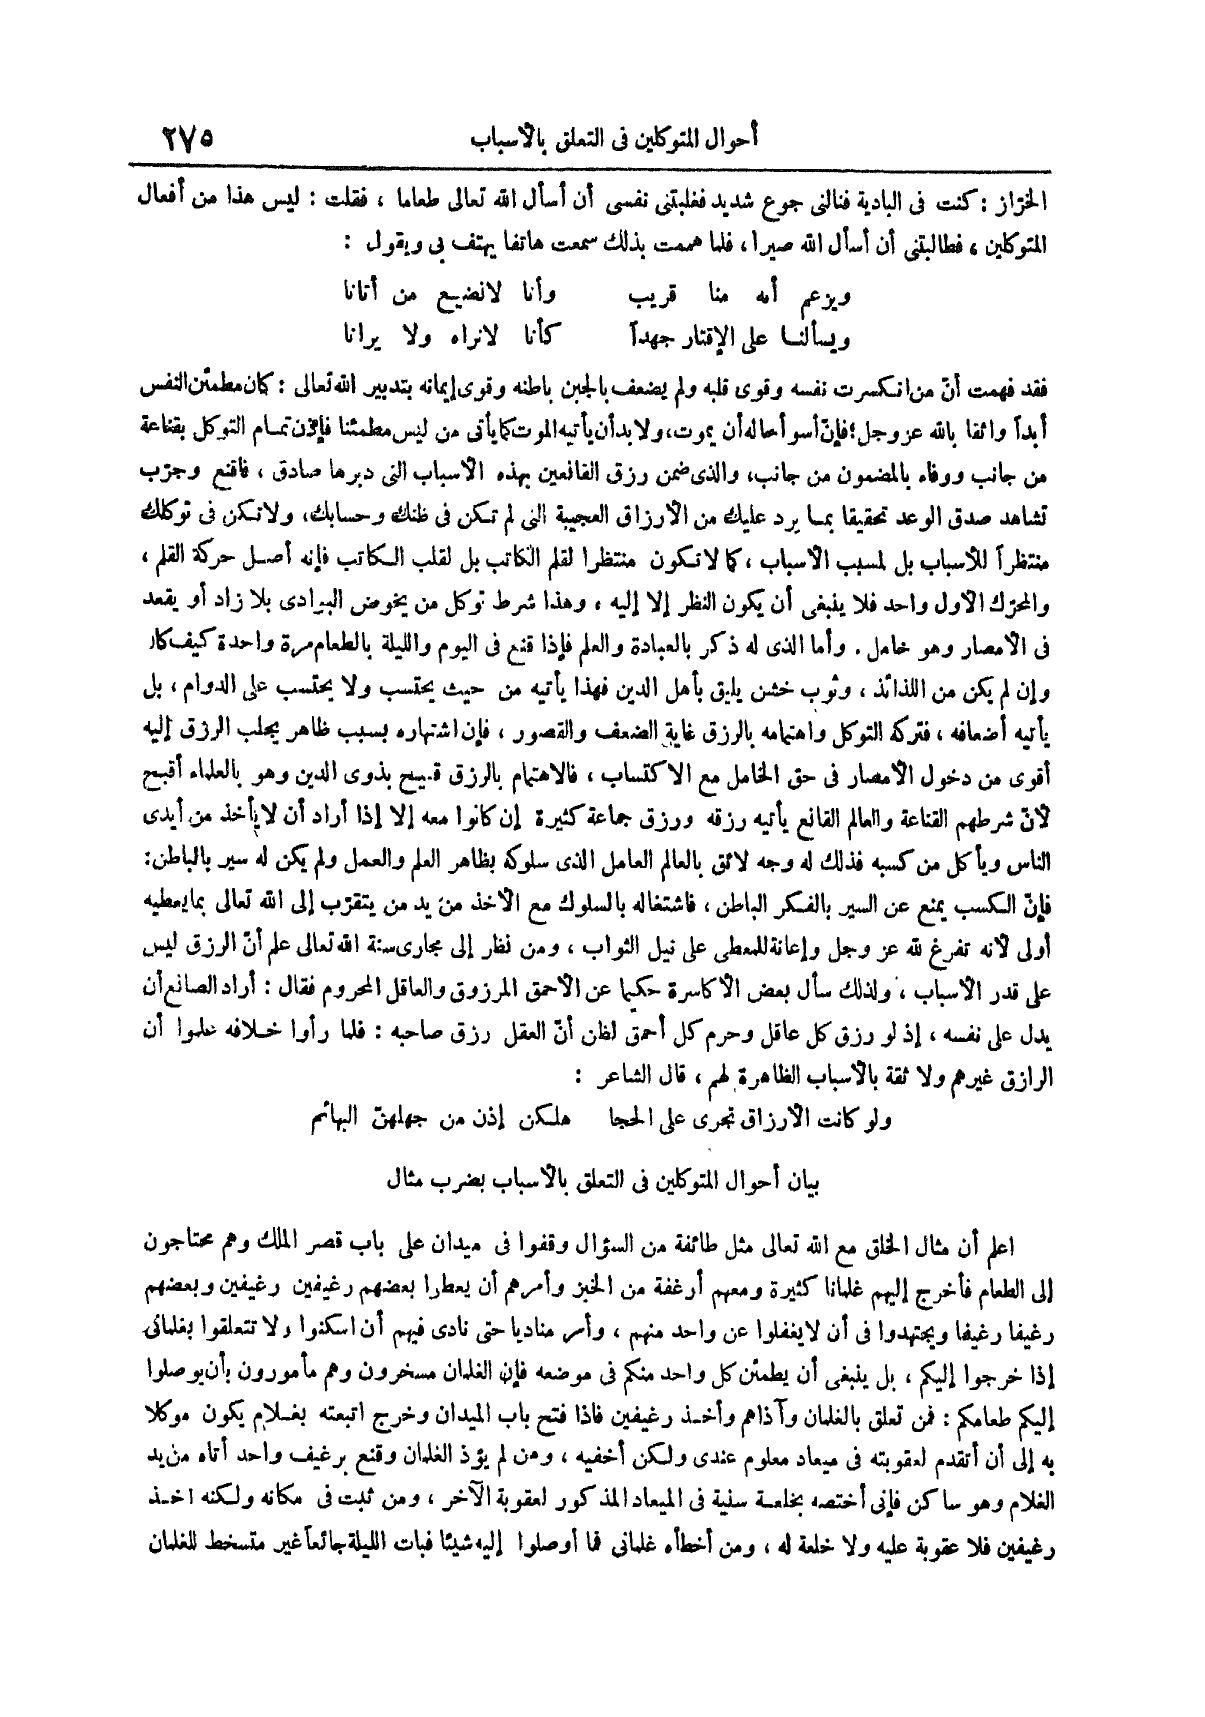 أحوال المتوكلين فى التعلق بالأسباب ٢٧٥
الخرّاز : كنت فى البادية فنالنى جوع شديد فغلبتنى نفسى أن أسأل الله تعالى طعاما ، فقلت : ليس هذا من أفعال
المتوكلين ، فطالبتنى أن أسأل الله صبرا ، فلما هممت بذلك سمعت هاتفا يهتف بى ويقول :
ويزعم أنه منا قريب وأنا لا نضيع من أتانا
ويسألنا على الإقتار جهداً كأنا لا نراه ولا يرانا
فقد فهمت أنّ من انكسرت نفسه وقوى قلبه ولم يضعف بالجبن باطنه وقوى إيمانه بتدبير الله تعالى : كان مطمئن النفس
أبداً واثقا بالله عز وجل ؛ فإنّ أسوأ حاله أن يموت ، ولا بد أن يأتيه الموت كما يأتى من ليس مطمئنا فإذن تمام التوكل بقناعة
من جانب ووفاء بالمضمون من جانب ، والذى ضمن رزق القانعين بهذه الأسباب التى دبرها صادق ، فاقنع وجرّب
تشاهد صدق الوعد تحقيقا بما يرد عليك من الأرزاق العجيبة التى لم تكن فى ظنك وحسابك ، ولا تكن فى توكلك
منتظراً للأسباب بل لمسبب الأسباب ، كما لا تكون منتظرا لقلم الكاتب بل لقلب الكاتب فإنه أصل حركة القلم ،
والمحرّك الأول واحد فلا ينبغى أن يكون النظر إلا إليه ، وهذا شرط توكل من يخوض البوادى بلا زاد أو يقعد
فى الأمصار وهو خامل . وأما الذى له ذكر بالعبادة والعلم فإذا قنع فى اليوم والليلة بالطعام مرة واحدة كيف كان
وإن لم يكن من اللذائذ ، وثوب خشن يليق بأهل الدين فهذا يأتيه من حيث يحتسب ولا يحتسب على الدوام ، بل
يأتيه أضعافه ، فتركه التوكل واهتمامه بالرزق غاية الضعف والقصور ، فإن اشتهاره بسبب ظاهر يجلب الرزق إليه
أقوى من دخول الأمصار فى حق الخامل مع الاكتساب ، فالاهتمام بالرزق قبيح بذوى الدين وهو بالعلماء أقبح
لأنّ شرطهم القناعة والعالم القانع يأتيه رزقه ورزق جماعة كثيرة إن كانوا معه إلا إذا أراد أن لا يأخذ من أيدى
الناس ويأكل من كسبه فذلك له وجه لائق بالعالم العامل الذى سلوكه بظاهر العلم والعمل ولم يكن له سير بالباطن :
فإنّ الكسب يمنع عن السير بالفكر الباطن ، فاشتغاله بالسلوك مع الأخذ من يد من يتقرّب إلى الله تعالى بما يعطيه
أولى لأنه تفرغ لله عز وجل وإعانة للمعطى على نيل الثواب ، ومن نظر إلى مجارى سنة الله تعالى علم أنّ الرزق ليس
على قدر الأسباب ، ولذلك سأل بعض الأكاسرة حكيما عن الأحمق المرزوق والعاقل المحروم فقال : أراد الصانع أن
يدل على نفسه ، إذ لو رزق كل عاقل وحرم كل أحمق لظن أنّ العقل رزق صاحبه : فلما رأوا خلافه علموا أن
الرازق غيرهم ولا ثقة بالأسباب الظاهرة لهم ، قال الشاعر :
ولو كانت الأرزاق تجرى على الحجا هلكن إذن من جهلهنّ البهائم
بيان أحوال المتوكلين فى التعلق بالأسباب بضرب مثال
اعلم أن مثال الخلق مع الله تعالى مثل طائفة من السؤال وقفوا فى ميدان على باب قصر الملك وهم محتاجون
إلى الطعام فأخرج إليهم غلمانا كثيرة ومعهم أرغفة من الخبز وأمرهم أن يعطوا بعضهم رغيفين رغيفين وبعضهم
رغيفا رغيفا ويجتهدوا فى أن لا يغفلوا عن واحد منهم ، وأمر مناديا حتى نادى فيهم أن اسكنوا ولا تتعلقوا بغلمانى
إذا خرجوا إليكم ، بل ينبغى أن يطمئن كل واحد منكم فى موضعه فإن الغلمان مسخرون وهم مأمورون بأن يوصلوا
إليكم طعامكم : فمن تعلق بالغلمان وآذاهم وأخذ رغيفين فاذا فتح باب الميدان وخرج اتبعته بغلام يكون موكلا
به إلى أن أتقدم لعقوبته فى ميعاد معلوم عندى ولكن أخفيه ، ومن لم يؤذ الغلمان وقنع برغيف واحد أتاه من يد
الغلام وهو ساكن فإنى أختصه بخلعة سنية فى الميعاد المذكور لعقوبة الآخر ، ومن ثبت فى مكانه ولكنه اخذ
رغيفين فلا عقوبة عليه ولا خلعة له ، ومن أخطأه غلمانى فما أوصلوا إليه شيئا فبات الليلة جائعاً غير متسخط للغلمان